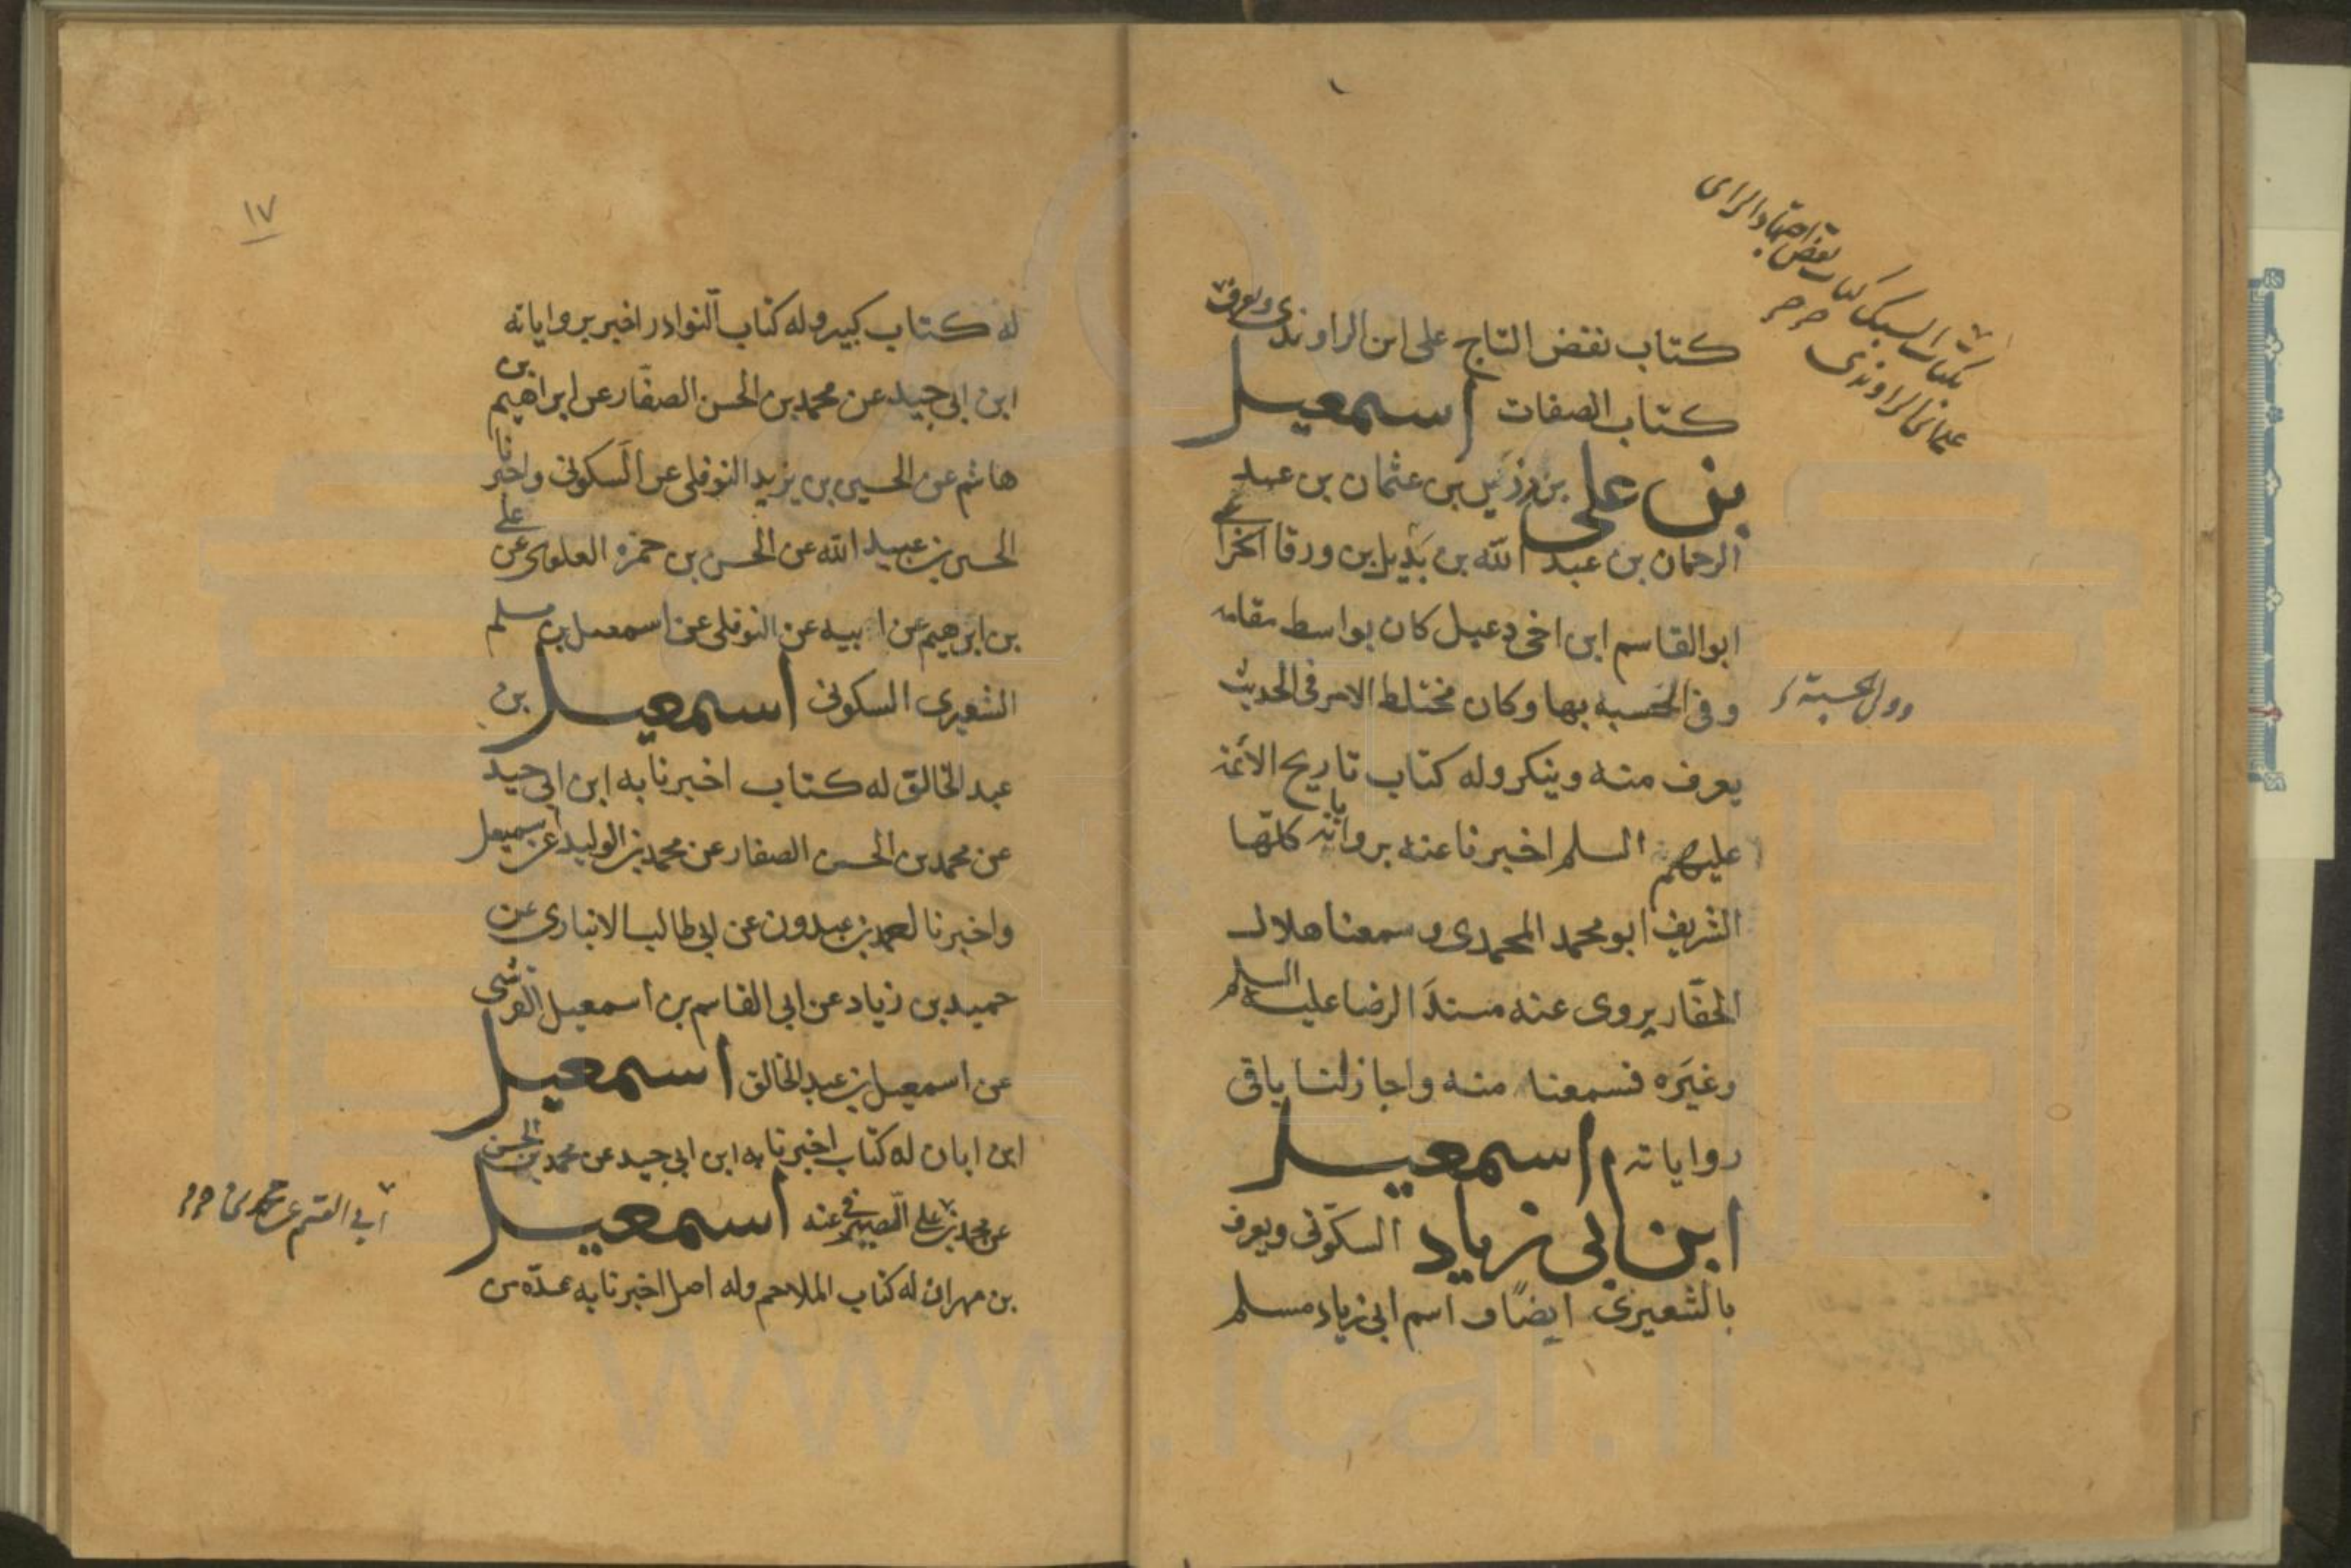 كتاب نقض التاج على ابن الراوندى ويعرف
بكتاب السبك كتاب نقض اجتهاد الراى
على ابن الراوندى
كتاب الصفات اسمعيل
بن على بن رزين بن عثمان بن عبد
الرحمان بن عبد الله بن بديل بن ورقا الخزاعى
ابو القاسم ابن اخى دعبل كان بواسط مقامه
وفى الحسبه بها وكان مختلط الامر فى الحديث
وولى الحسبة
يعرف منه وينكر وله كتاب تاريخ الائمة
عليهم السلم اخبرنا عنه برواياته كلها
الشريف ابو محمد المحمدى وسمعنا هلال
الحفّار يروى عنه مسند الرضا عليه السلم
وغيره فسمعنا منه واجاز لنا باقى
رواياته اسمعيل
ابن ابى زياد السكونى ويعرف
بالشعيرى ايضًا واسم ابى زياد مسلم
١٧
له كتاب كبير وله كتاب النوادر اخبر برواياته
ابن ابى جيد عن محمد بن الحسن الصفّار عن ابراهيم بن
هاشم عن الحسين بن يزيد النوفلى عن السكونى واخبرنا
الحسين بن عبيد الله عن الحسن بن حمزه العلوى عن على
بن ابرهيم عن ابيه عن النوفلى عن اسمعيل بن مسلم
الشعيرى السكونى اسمعيل بن
عبد الخالق له كتاب اخبرنا به ابن ابى جيد
عن محمد بن الحسن الصفار عن محمد بن الوليد عن اسمعيل
واخبرنا احمد بن عبدون عن ابى طالب الانبارى عن
حميد بن زياد عن ابى القاسم بن اسمعيل القرشى
عن اسمعيل بن عبد الخالق اسمعيل
ابن ابان له كتاب اخبرنا به ابن ابى جيد عن محمد بن الحسن
عن محمد بن على الصيرفى عنه اسمعيل
ابى القسم عن محمد بن
بن مهران له كتاب الملاحم وله اصل اخبرنا به عدّه من
www.ical.ir